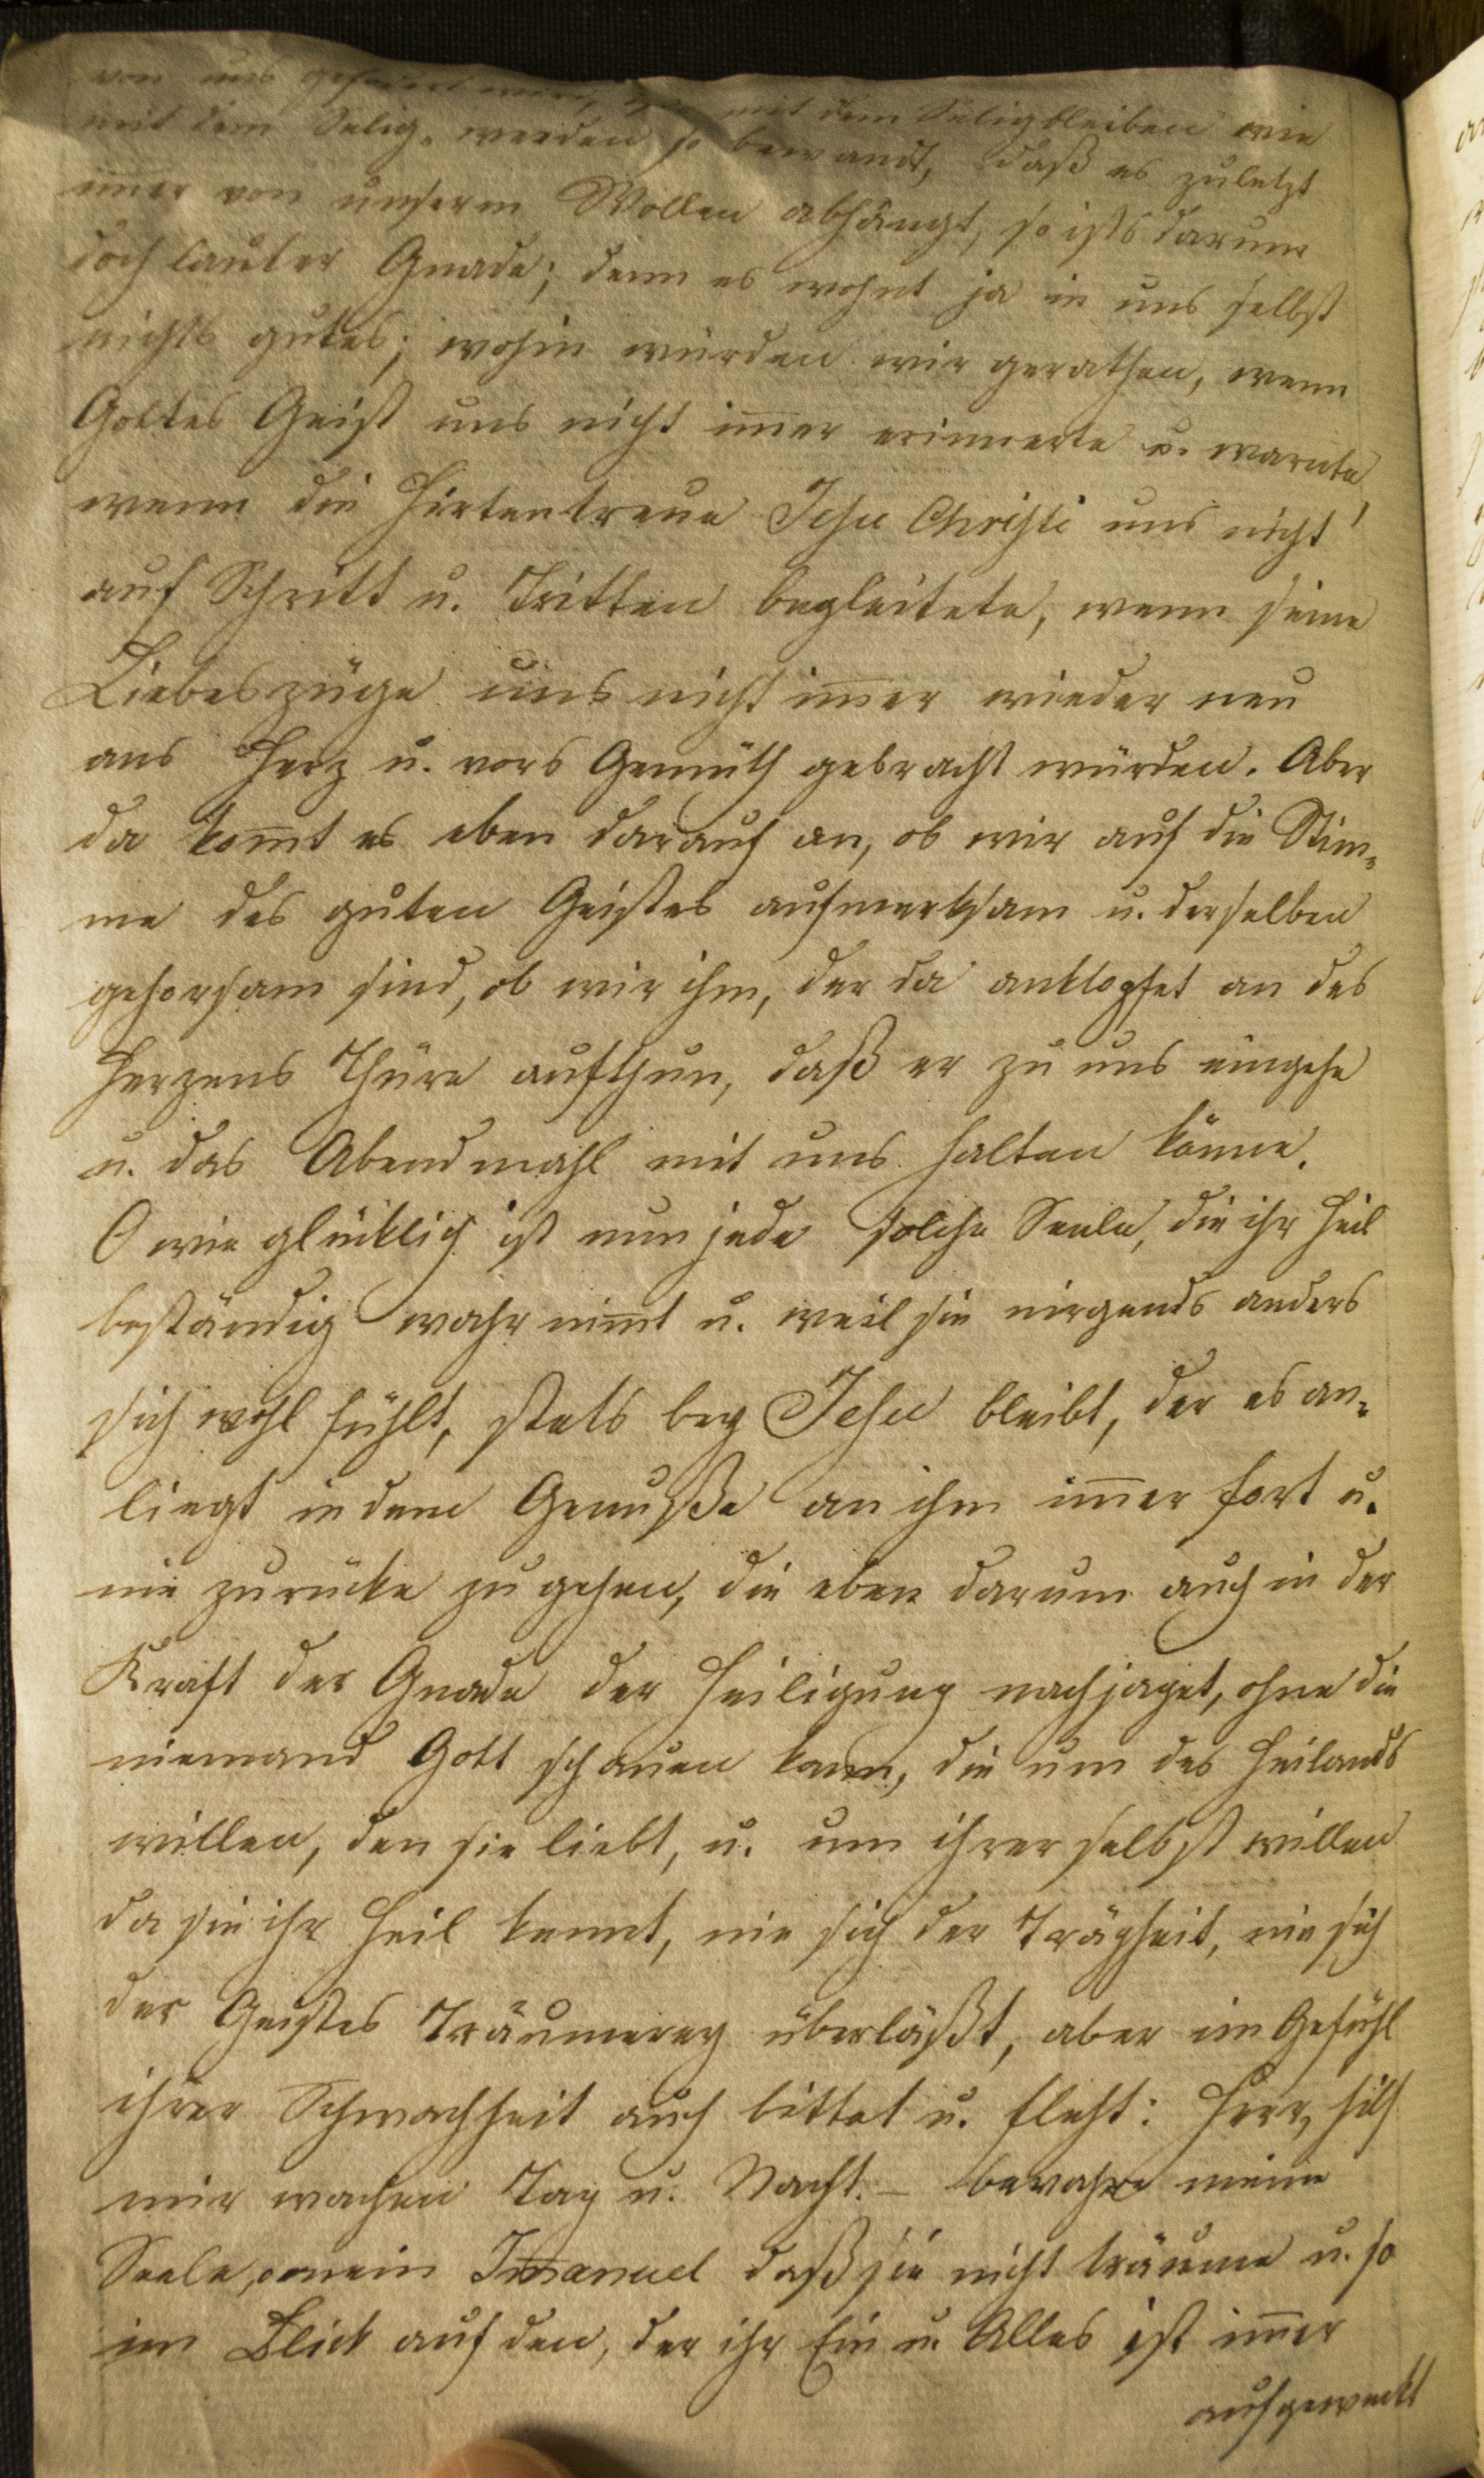 von uns mit dem Seligbleiben wie
mit dem Selig-werden so bewandt, daß es zuletzt
im̄er von unserem Wollen abhängt, so ists darum
doch lauter Gnade; denn es wohnt ja in uns selbst
nichts gutes; wohin würden wir gerathen, wenn
Gottes Geist uns nicht im̄er erinnerte u. warnte,
wenn die Hirtentreue Jesu Christi uns nicht
auf Schritt u. Tritten begleitete, wenn seine
Liebeszüge uns nicht im̄er wieder neu
ans Herz u. vors Gemüth gebracht würden. Aber
da kom̄t es eben darauf an, ob wir auf die Stim-
me des guten Geistes aufmerksam u. derselben
gehorsam sind, ob wir ihm, der da anklopfet an des
Herzens Thüre aufthun, daß er zu uns eingehe
u. das Abendmahl mit uns halten könne.
O wie glücklich ist nun jede solche Seele, die ihr Heil
beständig wahr nim̄t u. weil sie nirgends anders
sich wohl fühlt, stets bey Jesu bleibt, der es an-
liegt in dem Genuße an ihm im̄er fort u.
nie zurücke zu gehen, die eben darum auch in der
Kraft der Gnade der Heiligung nachjaget, ohne die
niemand Gott schauen kann, die um des Heilands
willen, den sie liebt, u. um ihrer selbst willen
da sie ihr Heil kennt, nie sich der Trägheit, nie sich
der Geistes Träumerey überläßt, aber im Gefühl
ihrer Schwachheit auch bittet u. fleht: Herr, hilf
mir wachen Tag u. Nacht. – bewahre meine
Seele, o mein Im̄anuel daß sie nicht träume u. so
im Blick auf den, der ihr Ein u. Alles ist im̄er
aufgeweckt